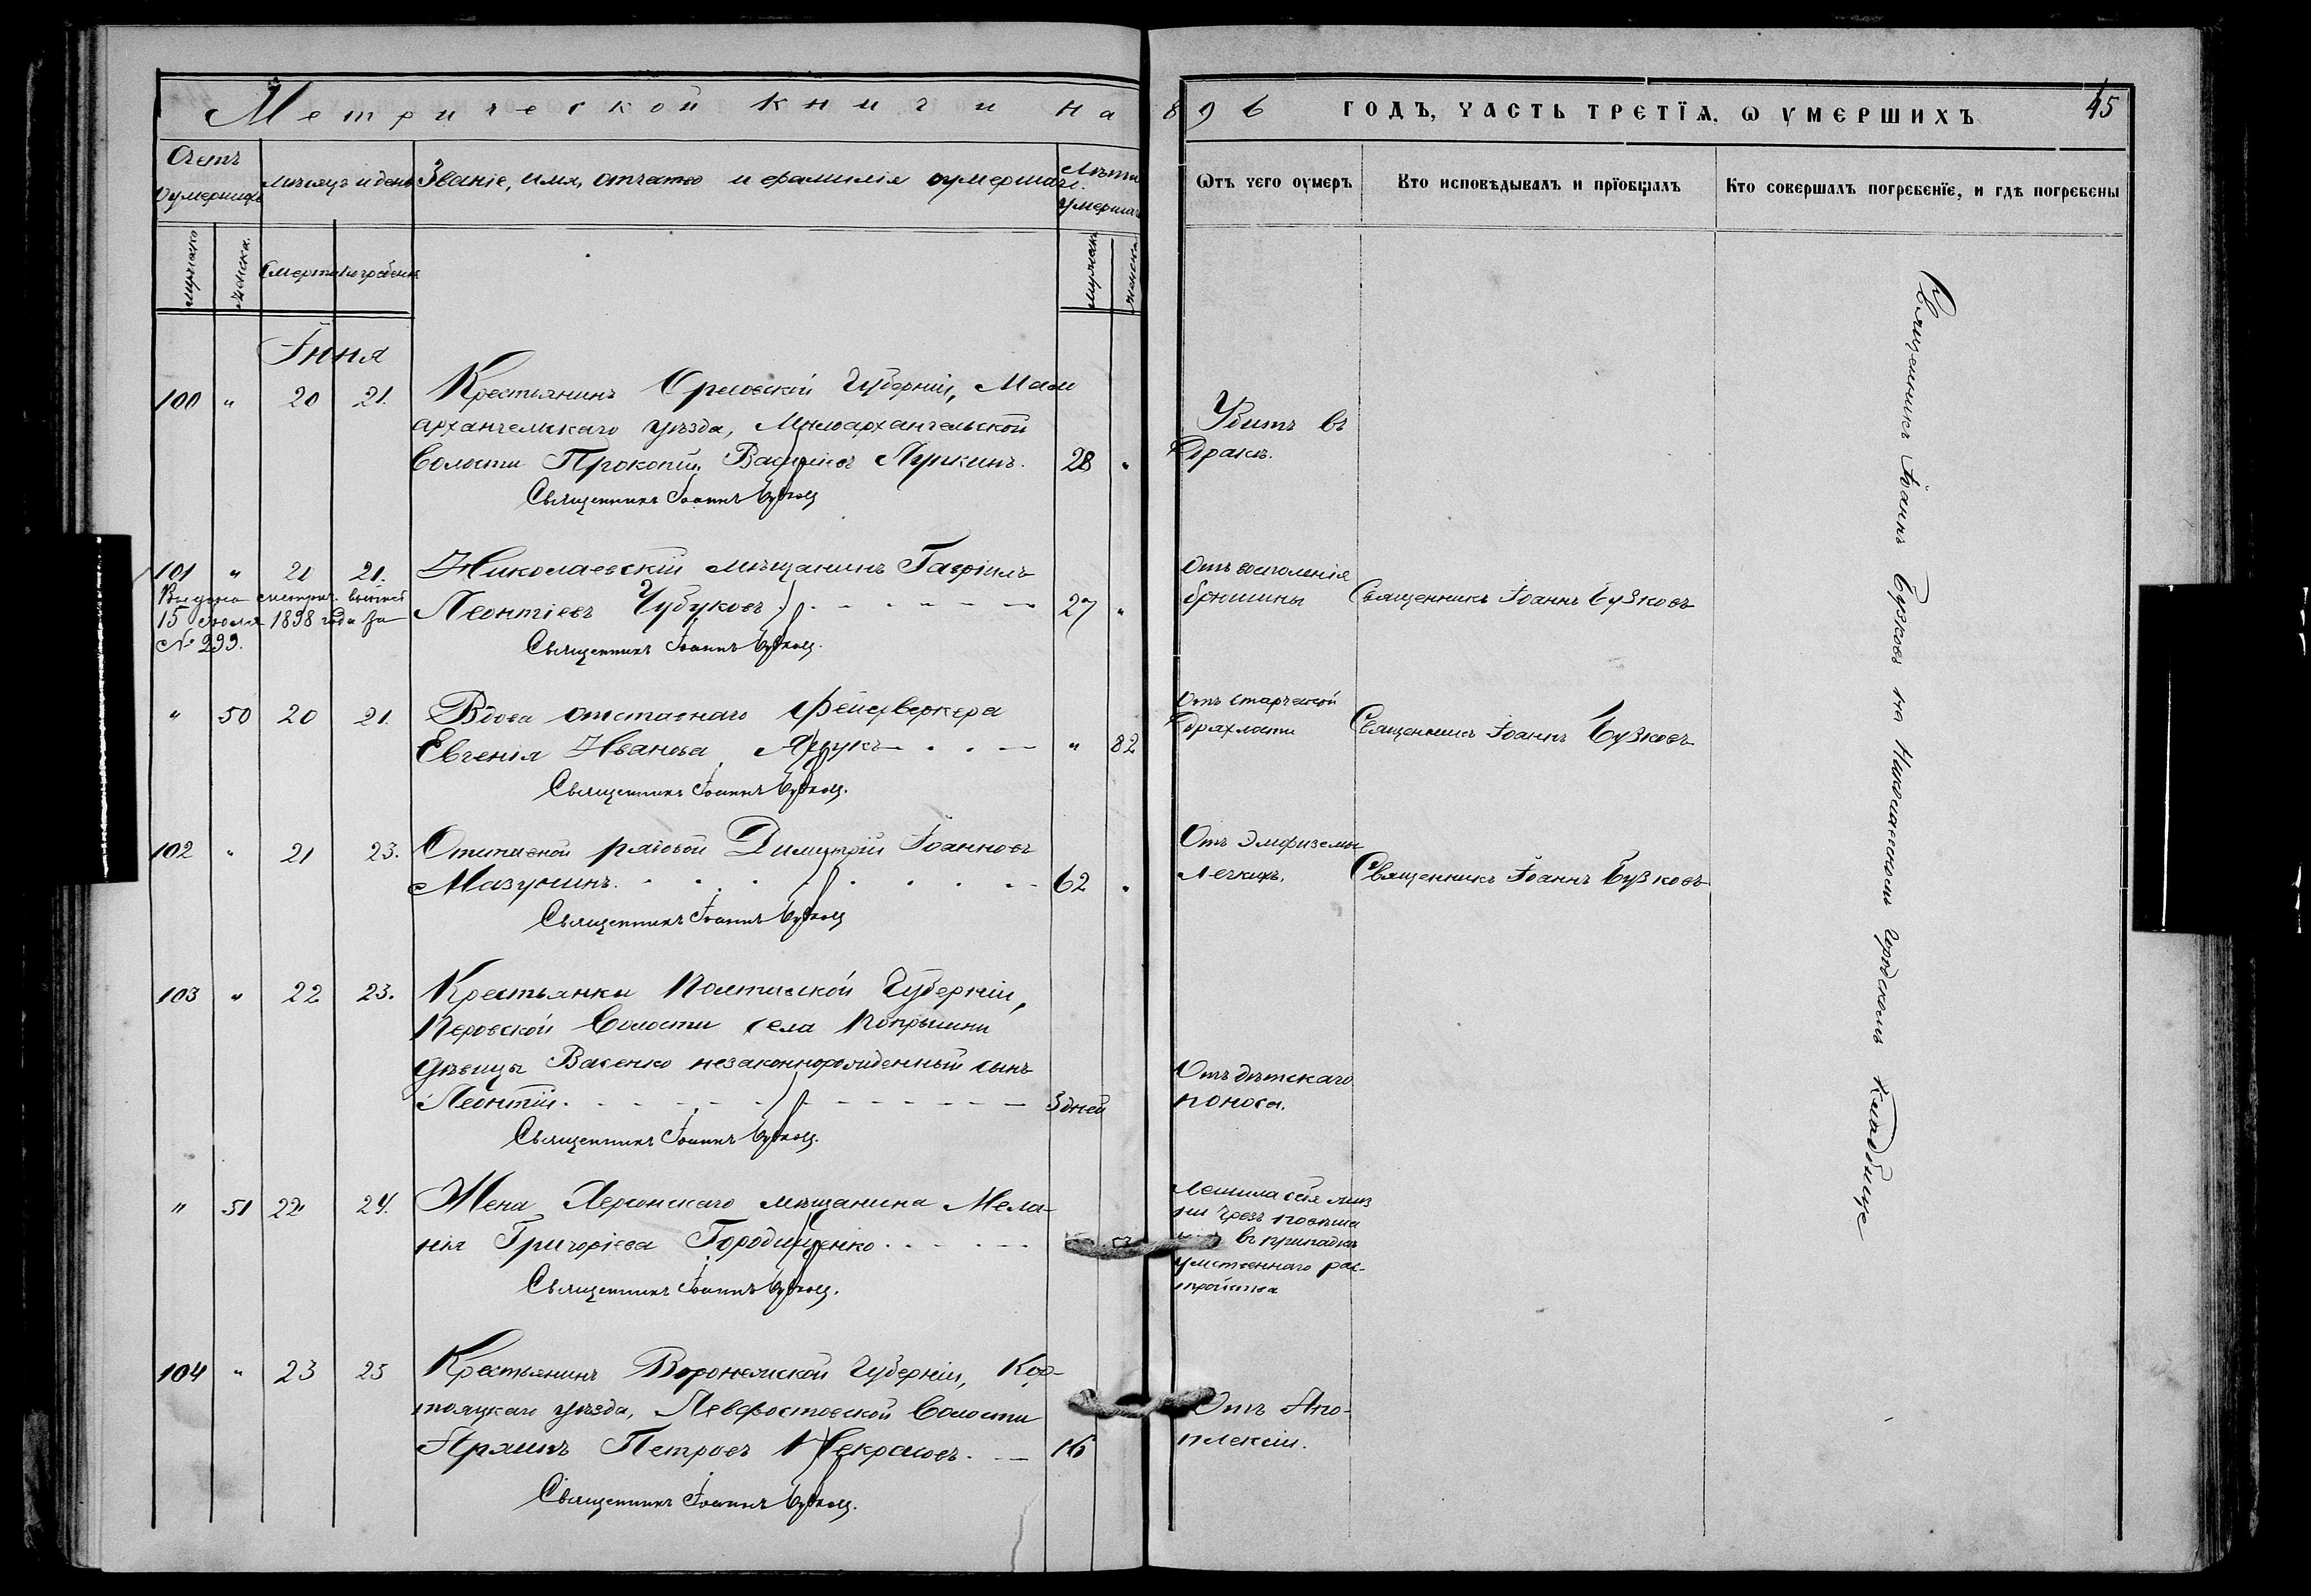 Метрической книги на 896 ГОДЪ, ЧАСТЬ ТРЕТІѦ, Ѡ УМЕРШИХЪ 45
Счетъ умершихъ
Мѣсяцъ и день
Званіе, имя, отчество и фамилія умершаго.
Лѣта умершаго
Ѿтъ чего оумеръ
Кто исповѣдывалъ и пріобщалъ
Кто совершалъ погребеніе, и гдѣ погребены
мужеска
женска.
Смерти
погребенія
мужеска
женска
Іюня
100 " 20 21. Крестьянинъ Орловской Губерніи, Мало
архангельскаго уѣзда, Малоархангельской
Волости Прокопій Васильевъ Лупкинъ. 28 "
Убитъ въ
дракѣ.
Священникъ Іоаннъ Бузковъ
101 " 21 21. Николаевскій мѣщанинъ Гавріилъ
Леонтіевъ Чубуковъ 27 "
Выдана метрич. выпись
15 Іюля 1898 года за
№ 299.
Отъ воспаленія
брюшины
Священникъ Іоаннъ Бузковъ
Священникъ Іоаннъ Бузковъ.
" 50 20 21. Вдова отставнаго Фейерверкера
Евгенія Иванова Яцукъ " 82
Отъ старческой
дряхлости
Священникъ Іоаннъ Бузковъ
Священникъ Іоаннъ Бузковъ.
102 " 21 23. Отставной рядовой Димитрій Іоанновъ
Мазункинъ. 62 "
Отъ Эмфиземы
легкихъ.
Священникъ Іоаннъ Бузковъ
Священникъ Іоаннъ Бузковъ
103 " 22 23. Крестьянки Полтавской Губерніи,
Перовской Волости села Попрышни
дѣвицы Васенко незаконнорожденный сынъ
Леонтій. 3 дней
Отъ дѣтскаго
поноса.
Священникъ Іоаннъ Бузковъ.
" 51 22 24. Жена Херсонскаго мѣщанина Мела-
нія Григоріева Городищенко
Лишила себя жиз
ни чрезъ повѣше
въ припадкѣ
умственнаго раз-
стройства
Священникъ Іоаннъ Бузковъ.
104 " 23 25 Крестьянинъ Воронежской Губерніи, Кор-
тояцкаго уѣзда, Волости
Петровъ Некрасовъ. 16
Отъ Апо-
плексіи.
Священникъ Іоаннъ Бузковъ.
Священникъ Іоаннъ Бузковъ на Николаевскомъ Городскомъ Кладбищѣ